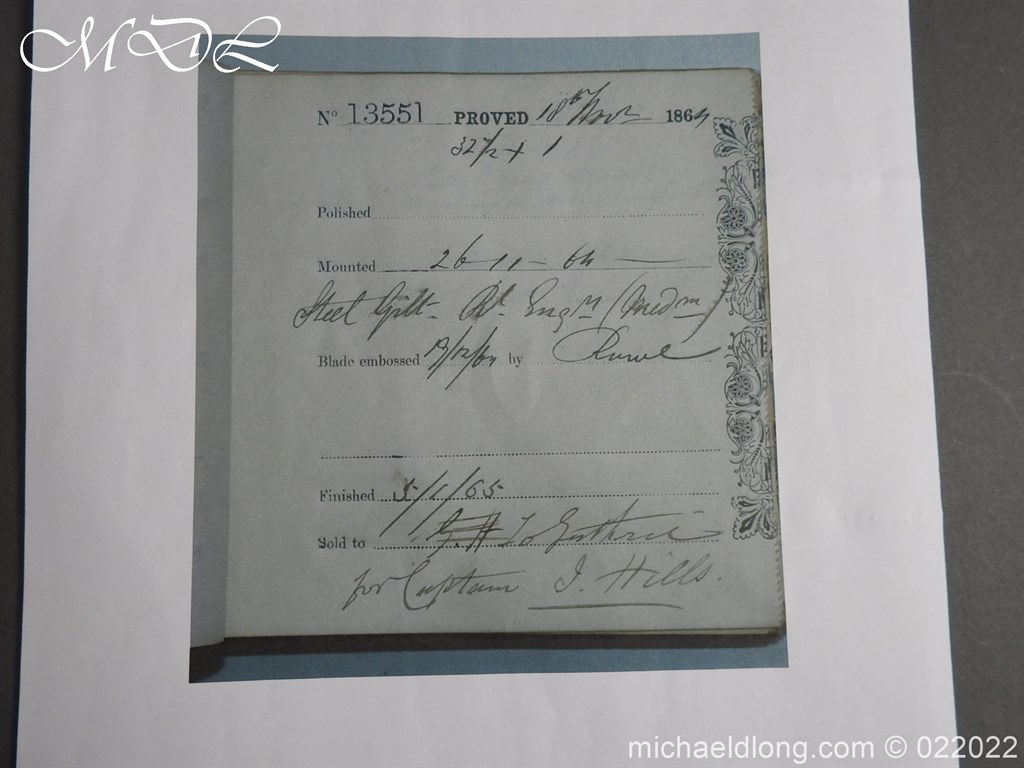 MDL
Nº 13551 PROVED 18th Novr 1864
32½ + 1
Polished
Mounted 26 - 11 - 64
Steel Gilt - Rl. Engrs (Medm)
Blade embossed /12/64 by Rowe
Finished 5/1/65
Sold to Guthrie
for Captain J. Hills.
michaeldlong.com © 022022